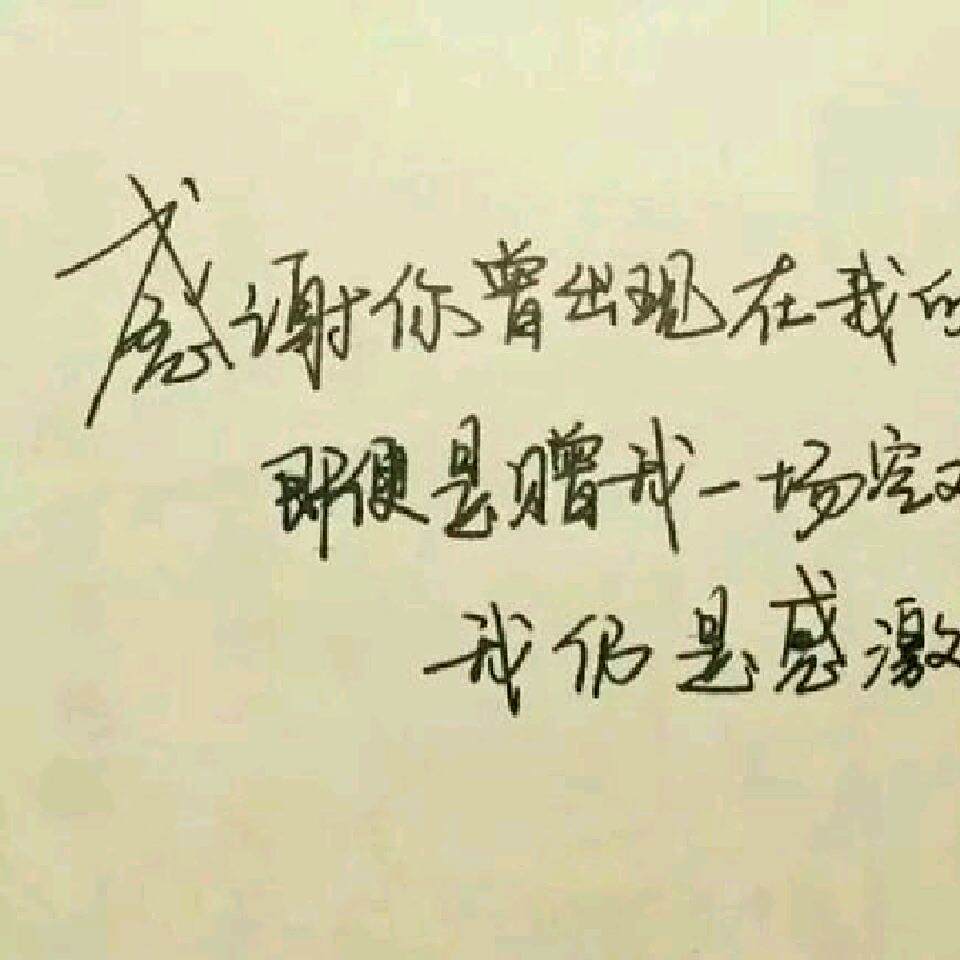 感谢你曾出现在我的
即便是赠我一场空
我仍是感激